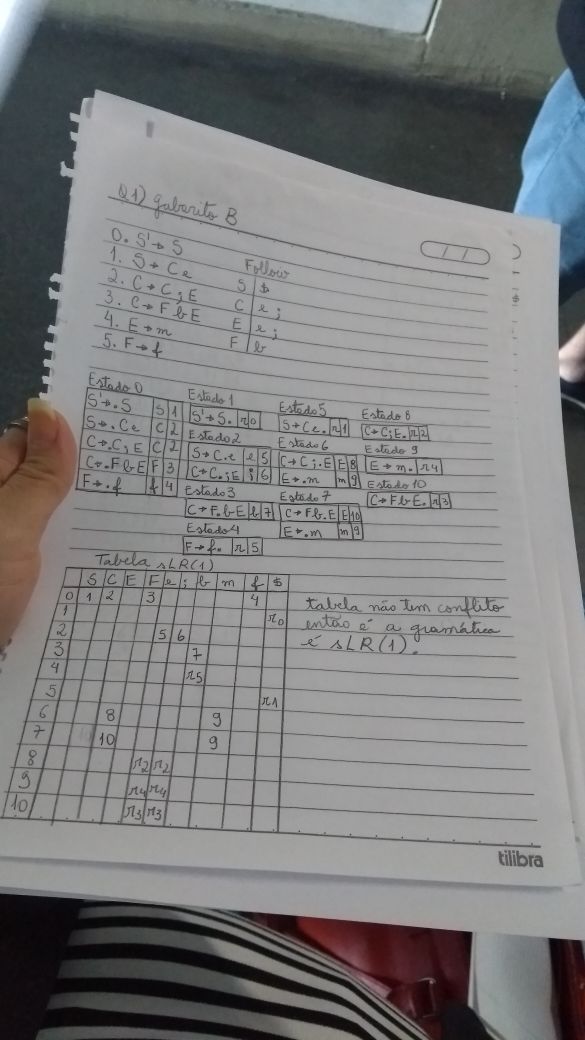 Q1) gabarito B
0. S'→ S
1. S→ Ce
2. C→ C;E
3. C→ FbE
4. E→ m
5. F→ f
Follow
S $
C e ;
E e ;
F b
Estado 0
S'→.S S 1
S→.Ce C 2
C→.C;E C 2
C→.FbE F 3
F→.f f 4
Estado 1
S'→S. r0
Estado 2
S→C.e e 5
C→C.;E ; 6
Estado 3
C→F.bE b 7
Estado 4
F→f. r 5
Estado 5
S→Ce. r1
Estado 6
C→C;.E E 8
E→.m m 9
Estado 7
C→Fb.E E 10
E→.m m 9
Estado 8
C→C;E. r2
Estado 9
E→m. r4
Estado 10
C→FbE. r3
Tabela sLR(1)
S C E F e ; b m f $
0 1 2 3 4
1 r0
2 5 6
3 7
4 r5
5 r1
6 8 9
7 10 9
8 r2 r2
9 r4 r4
10 r3 r3
tabela não tem conflito
então é a gramática
é sLR(1).
tilibra